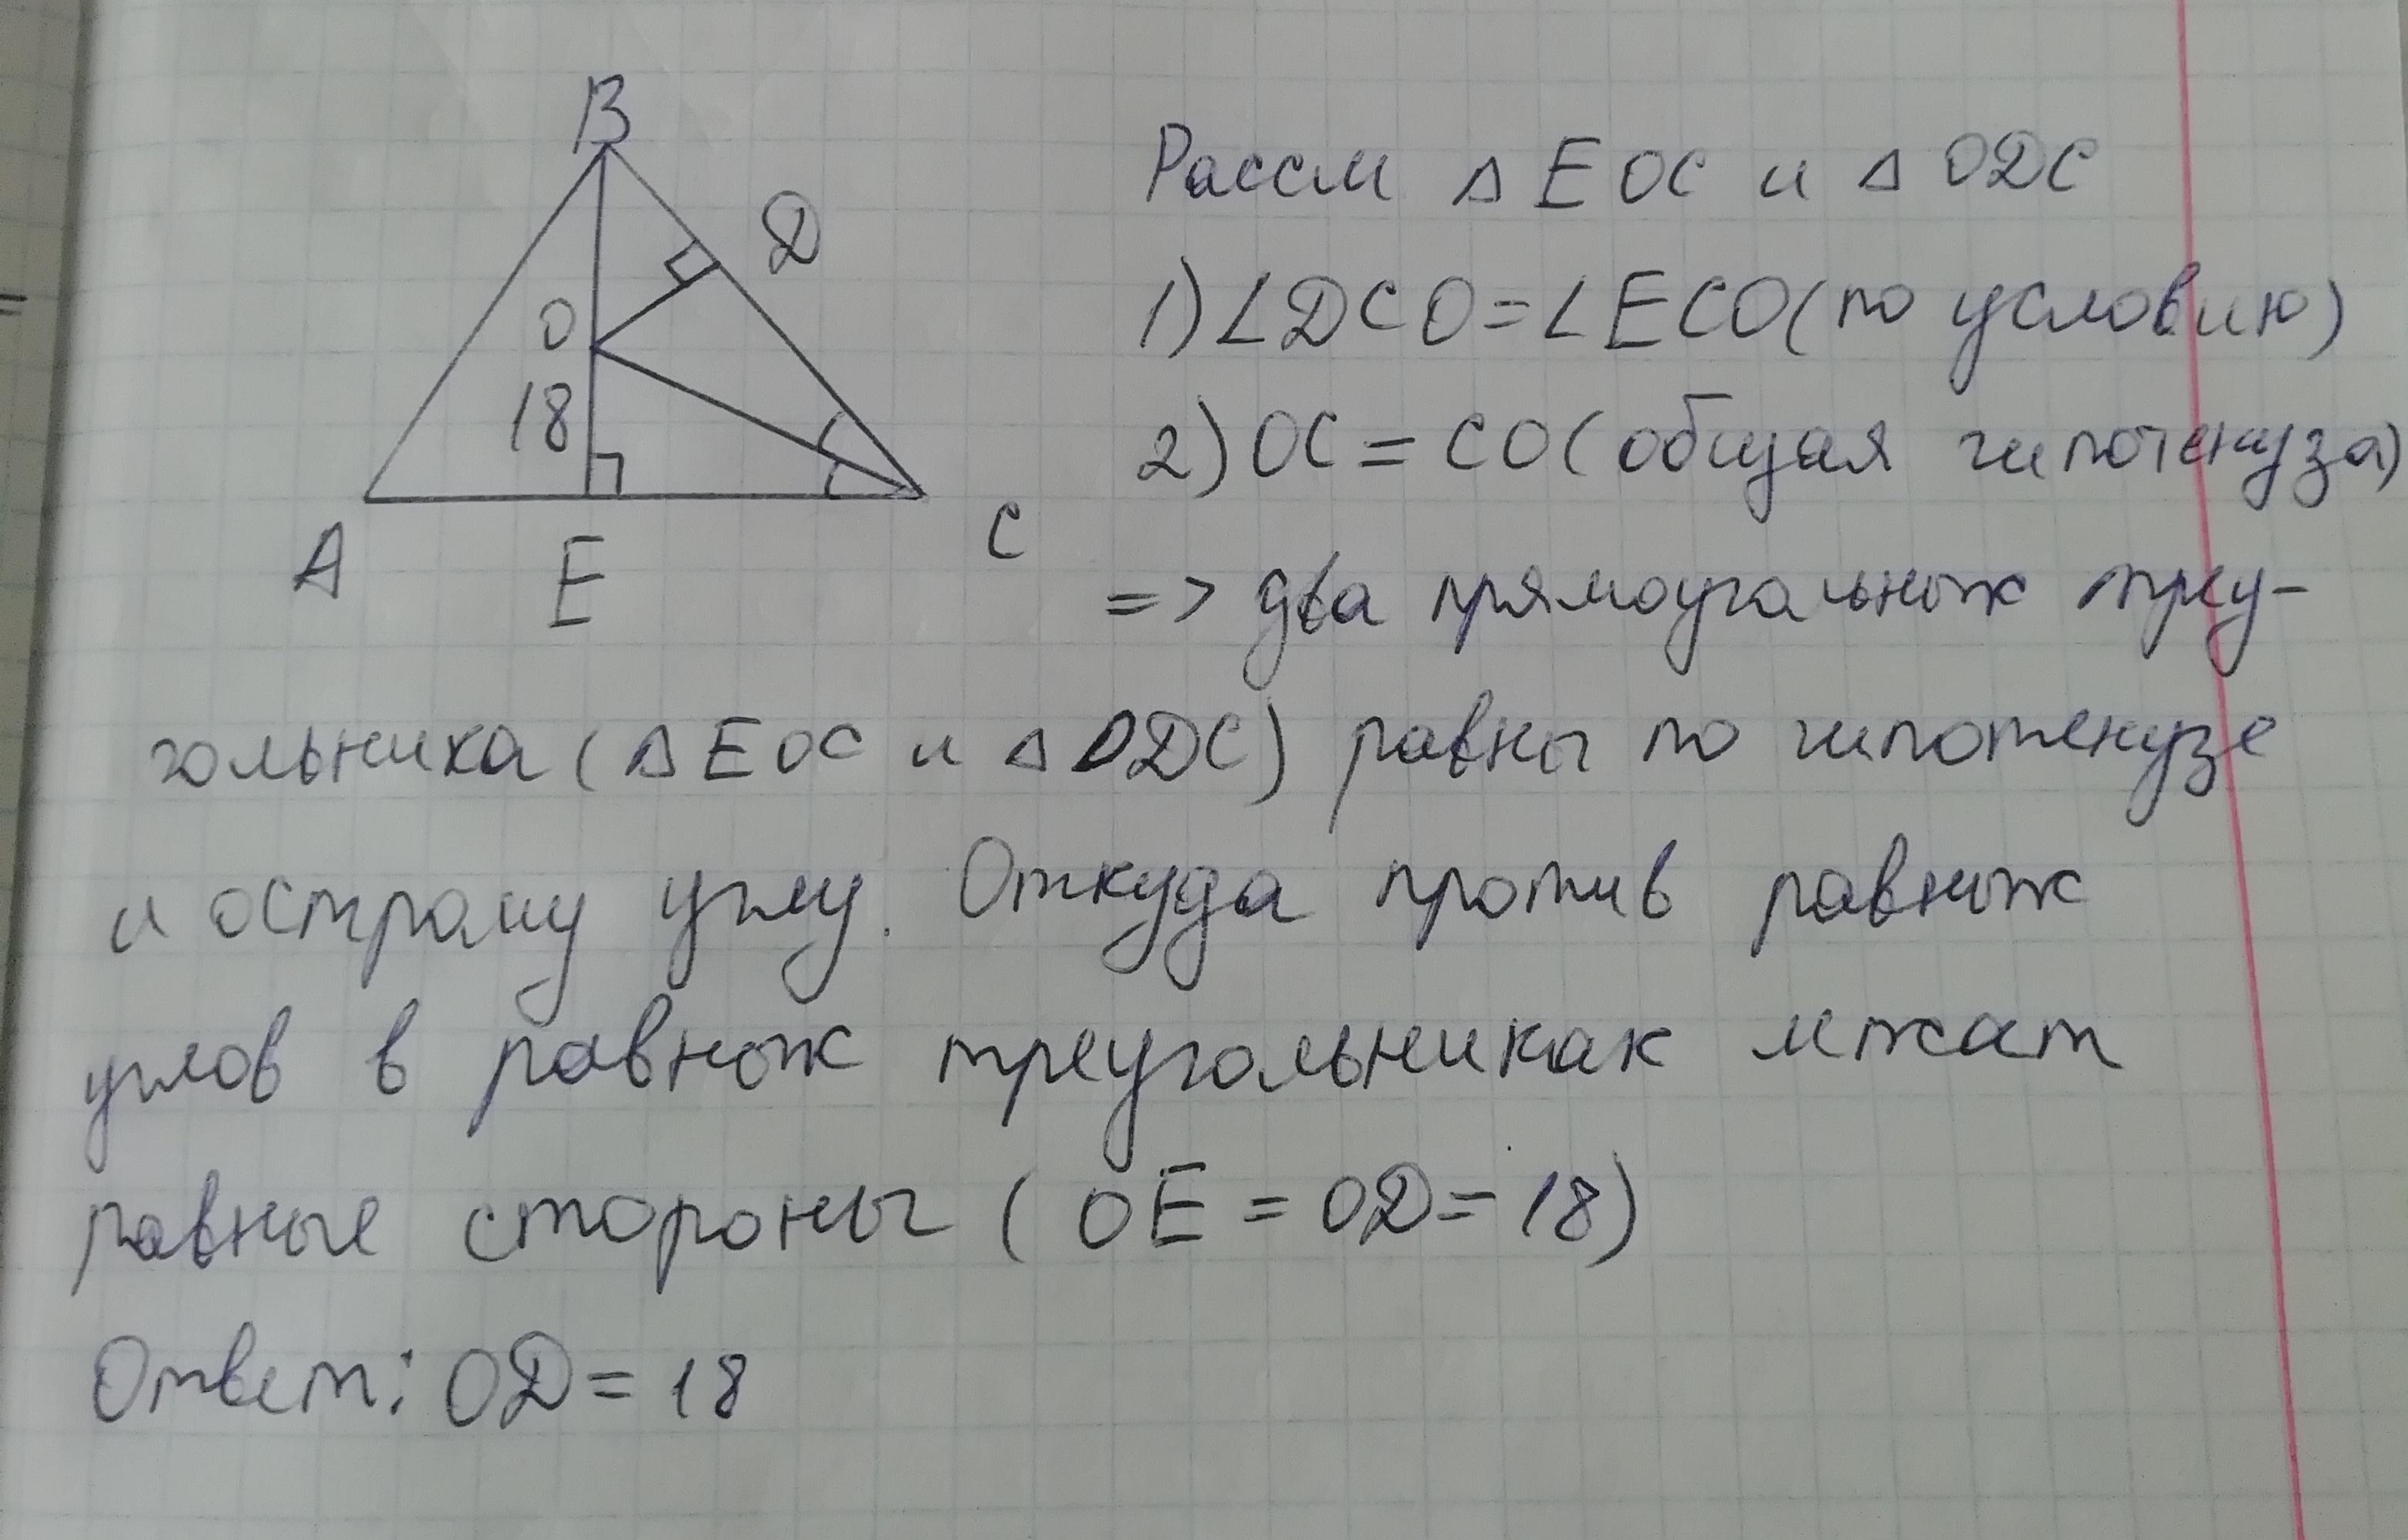 B
D
O
18
A
E
C
Рассм △ EOC и △ ODC
1) ∠DCO = ∠ECO (по условию)
2) OC = CO (общая гипотенуза)
=> два прямоугольных треу-
гольника (△ EOC и △ ODC) равны по гипотенузе
и острому углу. Откуда против равных
углов в равных треугольниках лежат
равные стороны (OE = OD = 18)
Ответ: OD = 18
=